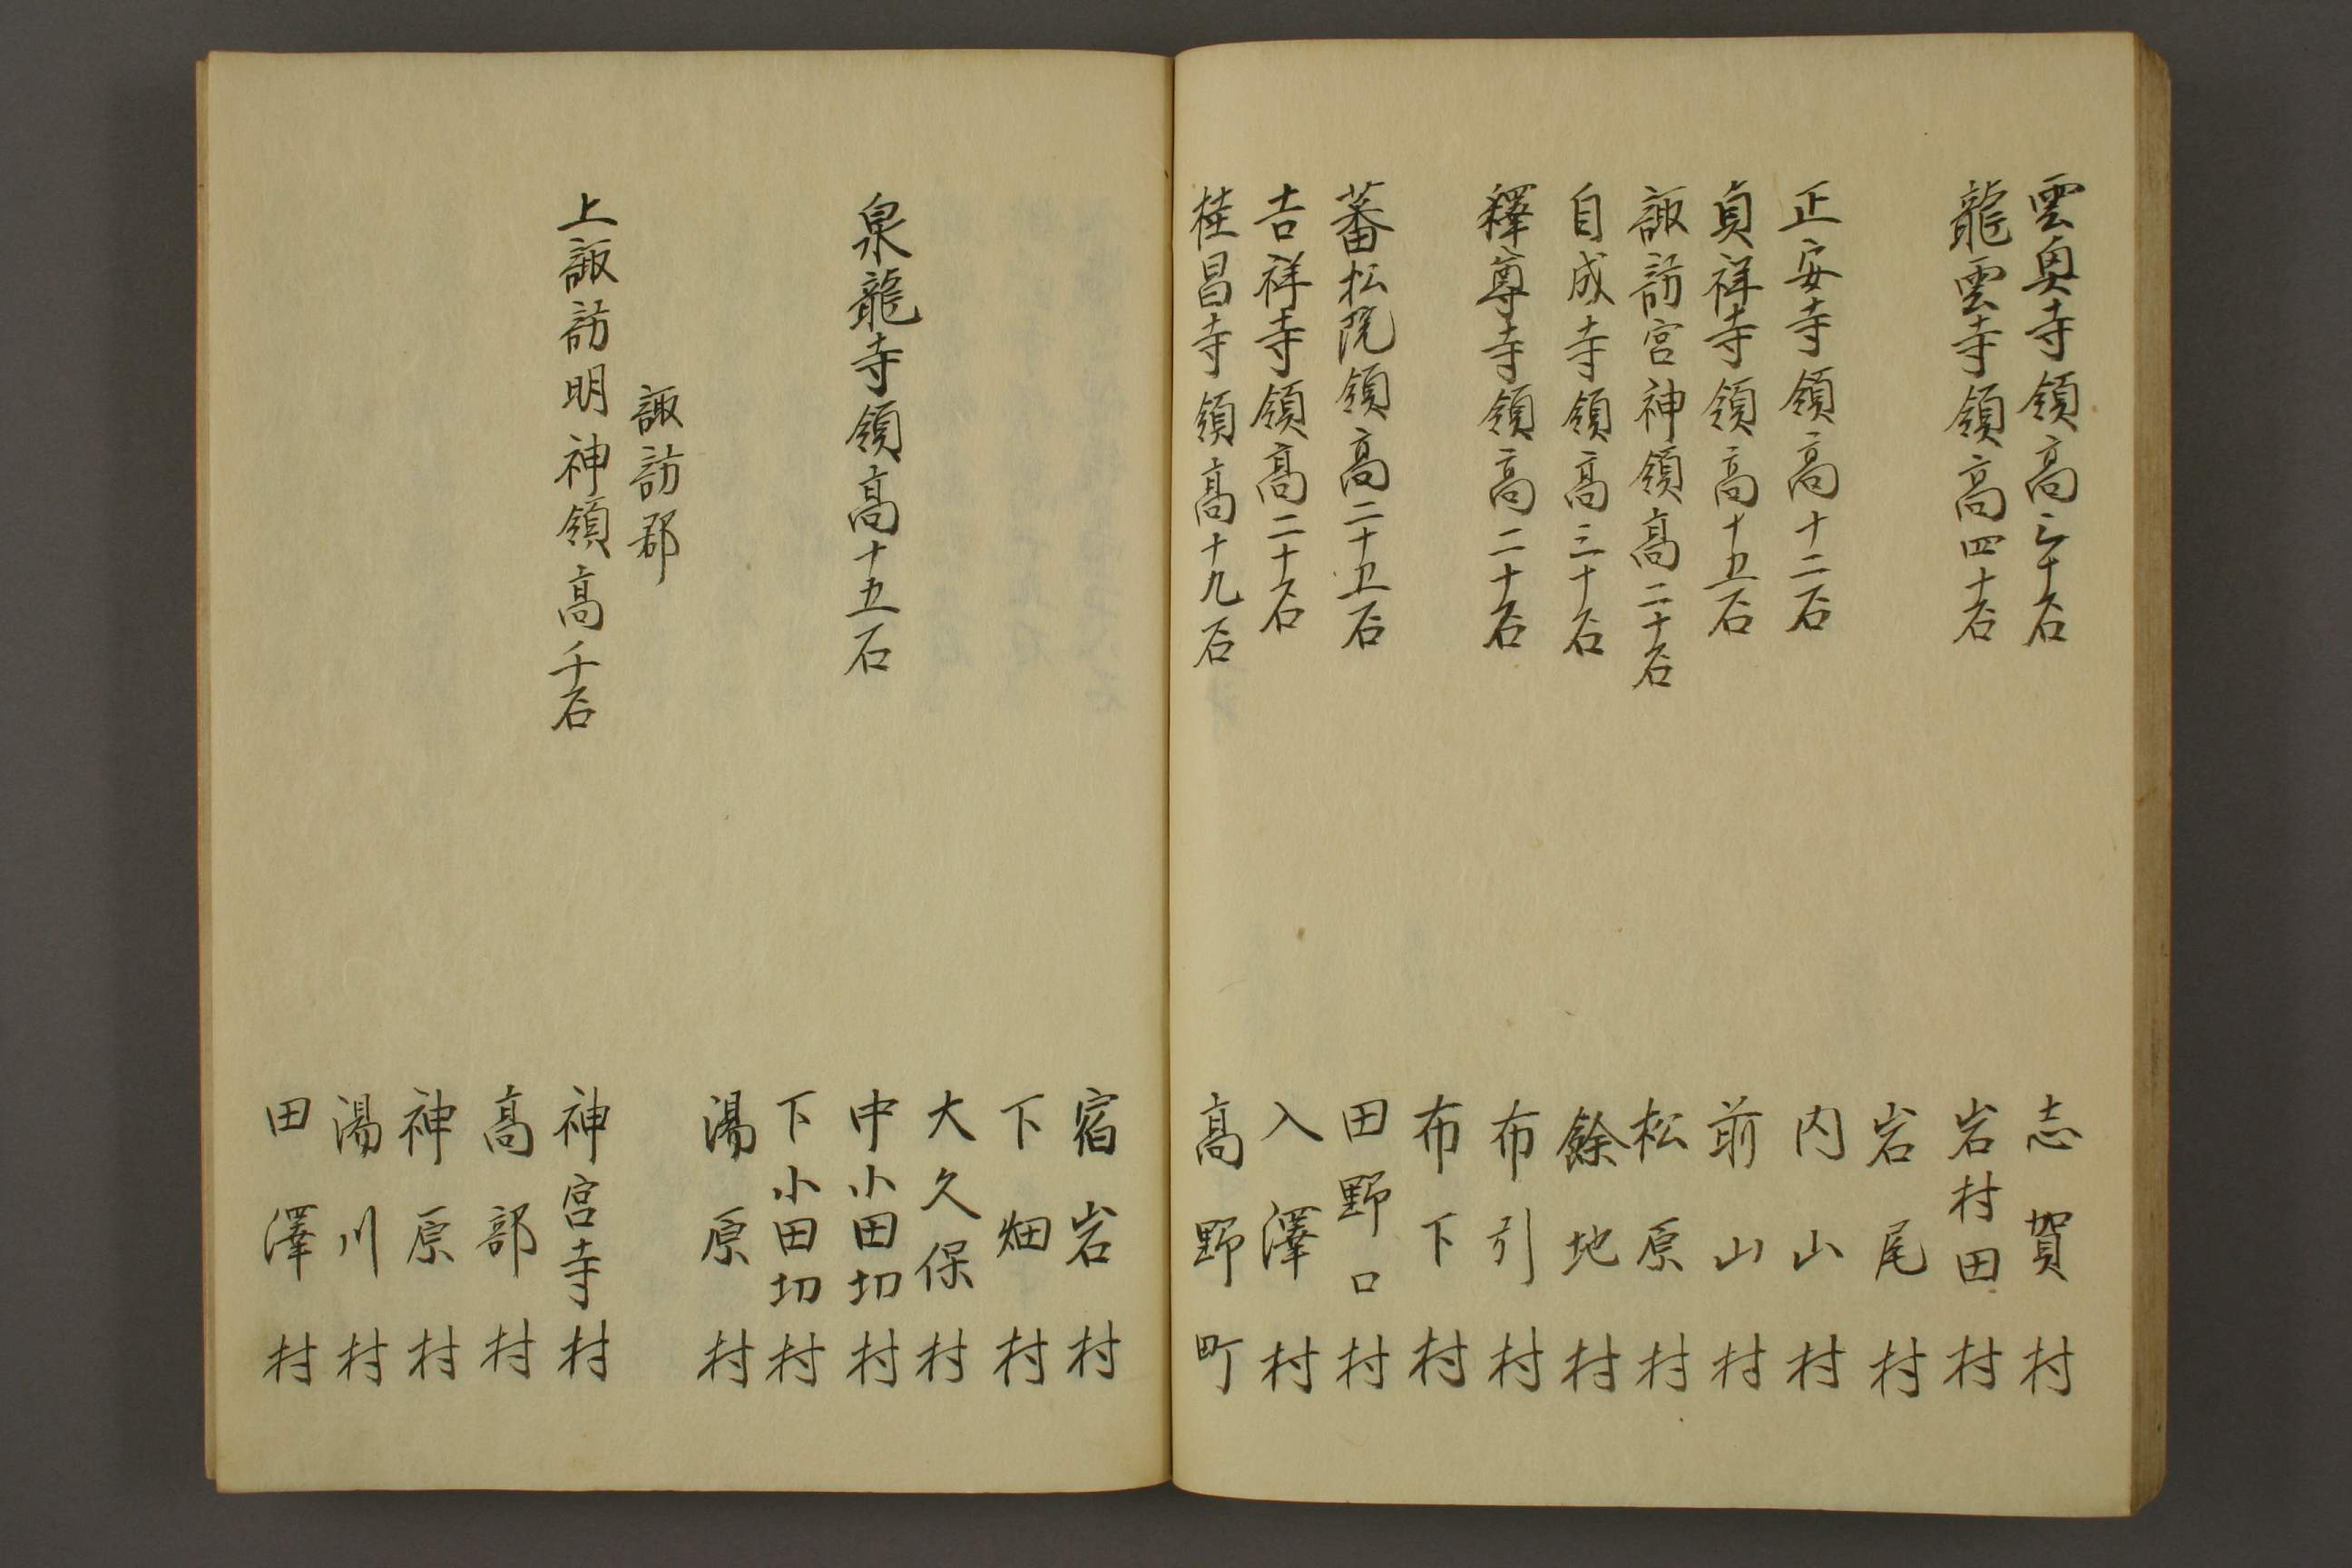 雲興寺領高三十石 志賀村
龍雲寺領高四十石 岩村田村
岩尾村
正安寺領高十二石 内山村
貞祥寺領高十五石 前山村
諏訪宮神領高二十石 松原村
自成寺領高三十石 餘地村
釋尊寺領高二十石 布引村
布下村
蕃松院領高二十五石 田野口村
吉祥寺領高二十石 入澤村
桂昌寺領高十九石 高野町
宿岩村
下畑村
大久保村
泉龍寺領高十五石 中小田切村
下小田切村
湯原村
諏訪郡
上諏訪明神領高千石 神宮寺村
高部村
神原村
湯川村
田澤村